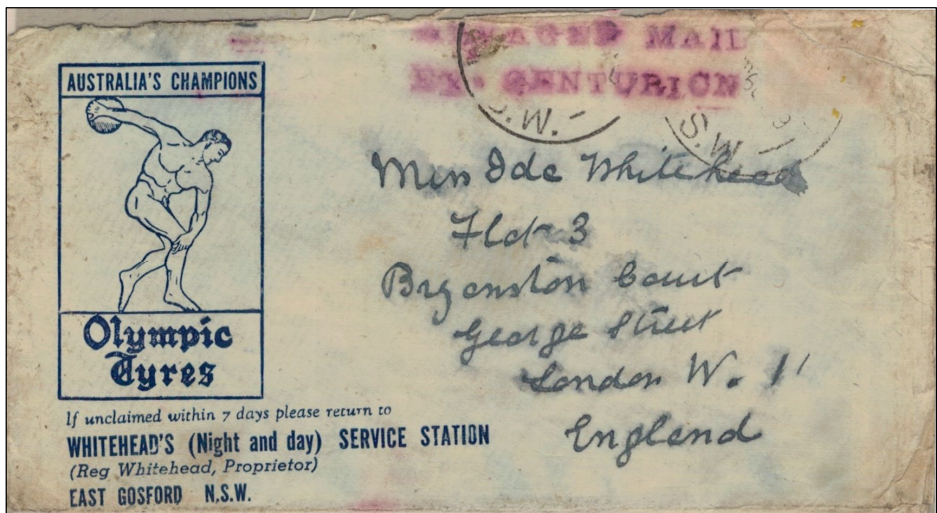 MAIL
EX. CENTURION
S.W.
S.W.
AUSTRALIA'S CHAMPIONS
Olympic
Tyres
If unclaimed within 7 days please return to
WHITEHEAD'S (Night and day) SERVICE STATION
(Reg Whitehead, Proprietor)
EAST GOSFORD N.S.W.
Miss Ida Whitehead
Flat 3
Bryanston Court
George Street
London W. 1
England